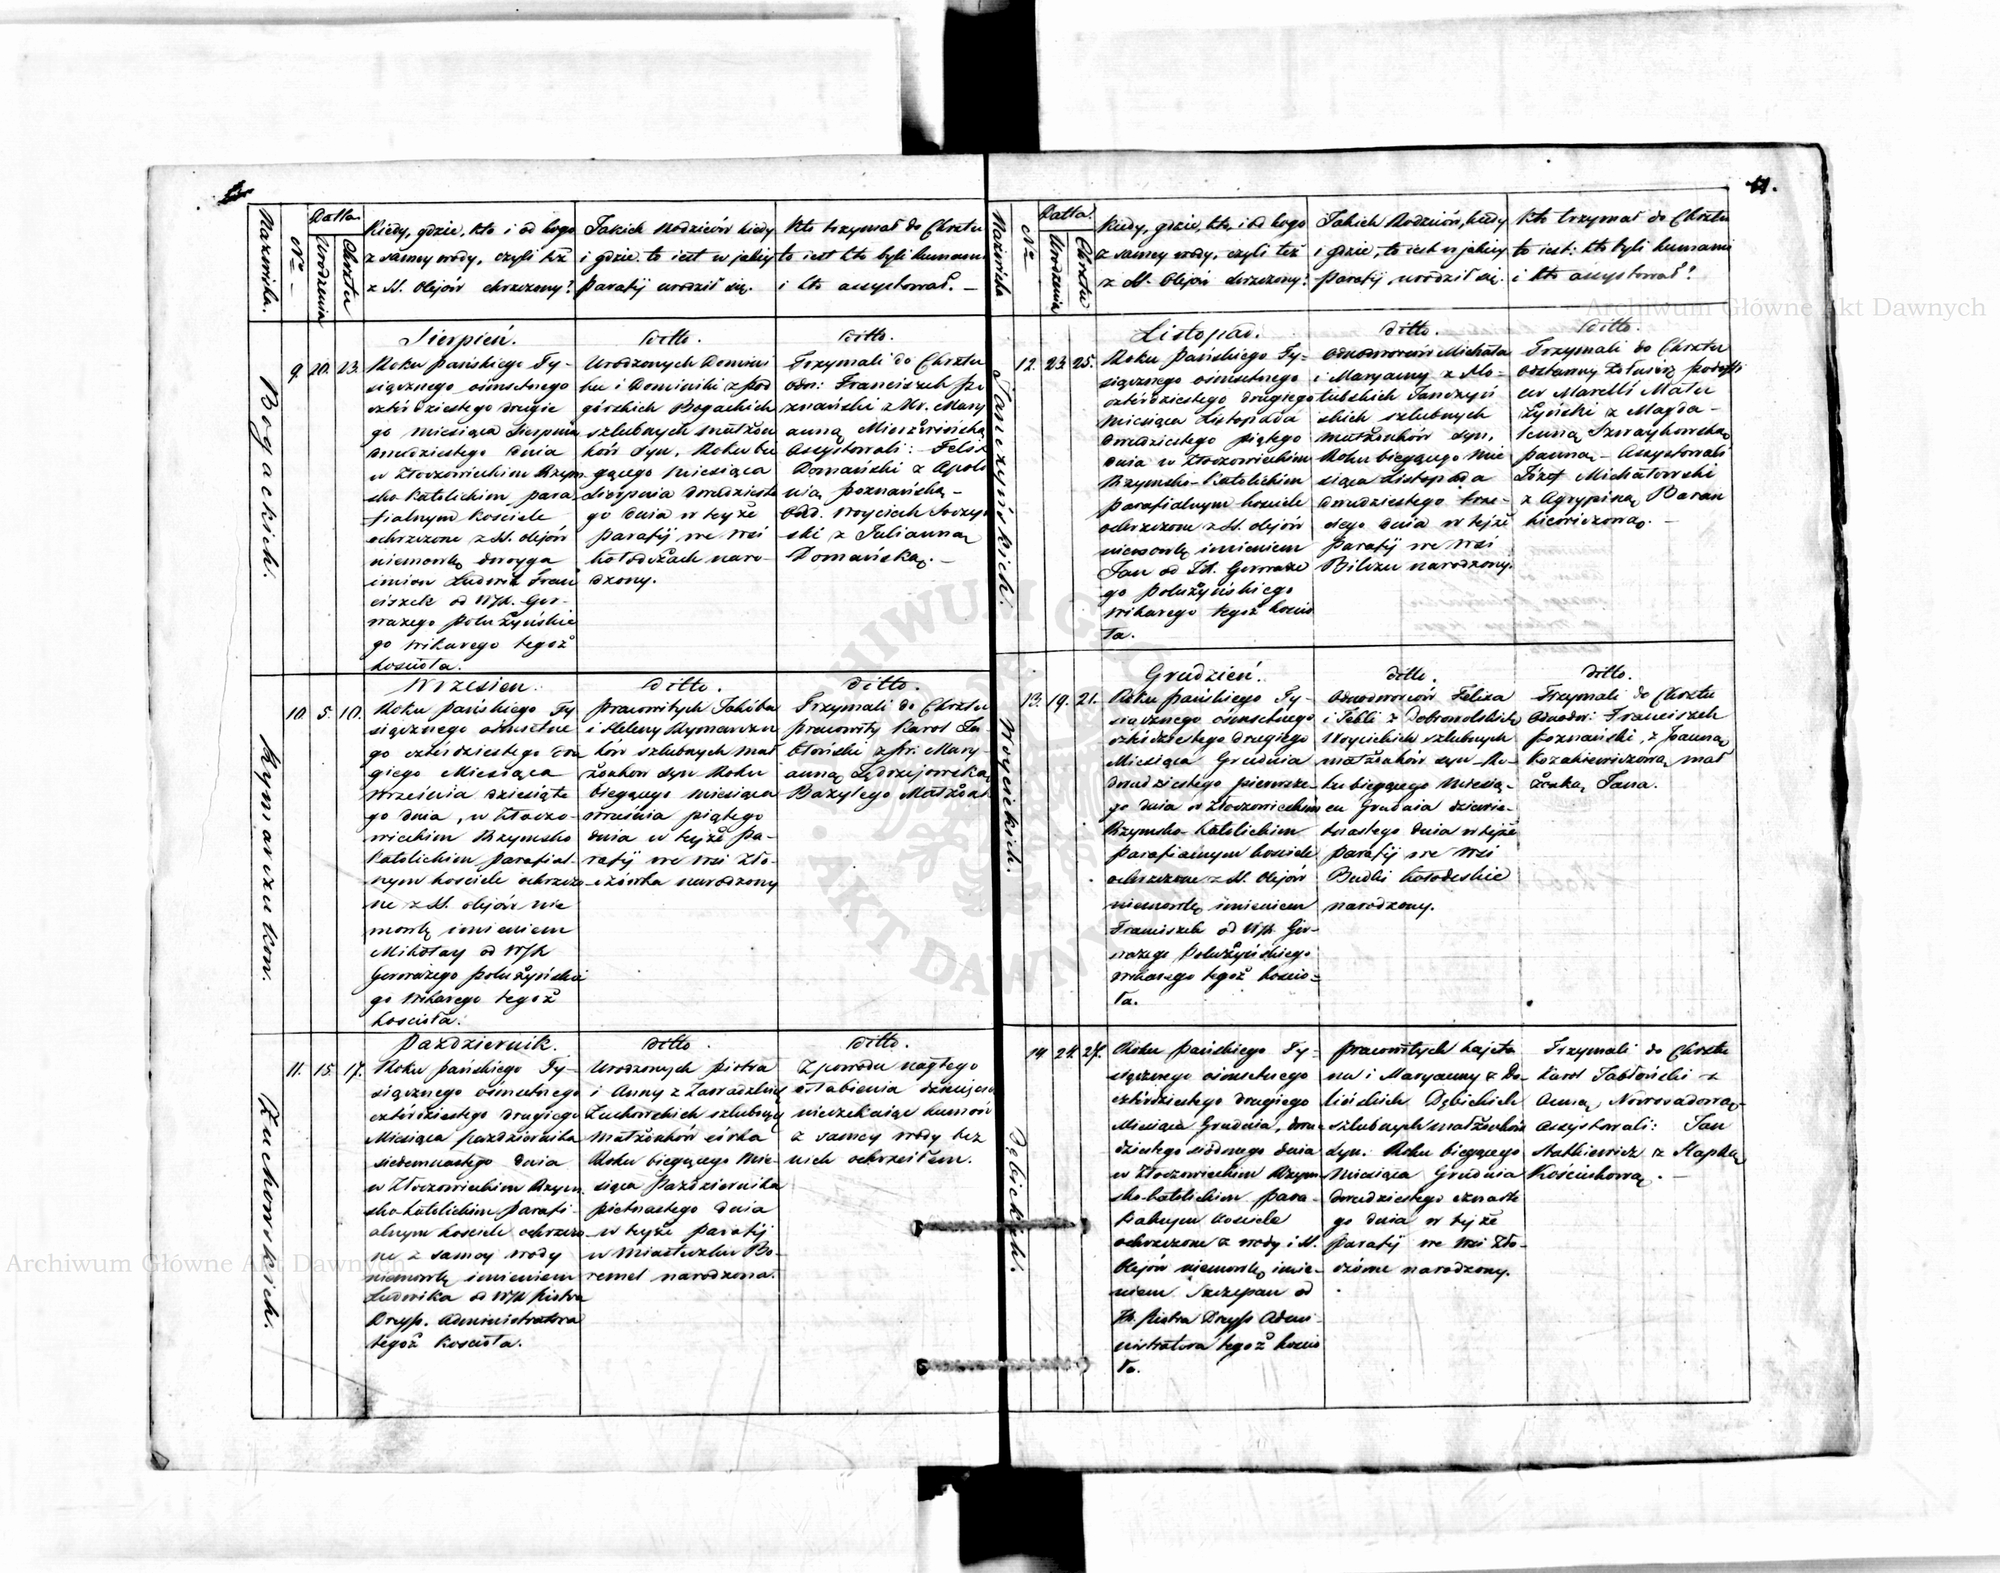 11.
Nazwiska.
Nro
Datta.
Urodzenia
Chrztu
Kiedy, gdzie, kto i od kogo
z samey wody, czyli też
z SS. Olejów chrzczony?
Jakich Rodziców kiedy
i gdzie to iest w jakiey
Parafij urodził się.
Kto trzymał do Chrztu
to iest kto byli kumami
i kto assystował. —
Bogackich.
9.
20.
23.
Sierpień.
Roku Pańskiego Ty-
siącznego ośmsetnego
czterdziestego drugie
go miesiąca Sierpnia
dwudziestego dnia
w Złoczowieckim Rzym
sko-Katolickim para
fialnym Kościele
ochrzczone z SS. olejów
niemowlę dwoyga
imion Ludwik Fran
ciszek od WJX. Ger-
wazego Połużyńskie
go wikarego tegoż
kościoła.
ditto.
Urodzonych Domini
ka i Dominiki z Pod
górskich Bogackich
szlubnych małżon
ków syn, Roku bie
gącego miesiąca
Sierpnia dwudzieste
go dnia w teyże
parafij we wsi
Kołodeżach naro-
dzony.
ditto.
Trzymali do Chrztu
odn: Franciszek Po
znański z Ur. Mary
anną Mierzwińską
Assystowali: Felix
Domański z Apoli
nią Poznańską -
Odd. Woyciech
ski z Julianną
Domańską. -
Rymarczukow.
10.
5.
10.
Wrzesien.
Roku Pańskiego Ty
siącznego ośmsetne
go czterdziestego dru
giego Miesiąca
Września dziesiąte
go dnia, w Złoczo-
wieckim Rzymsko
Katolickim parafial
nym kosciele ochrzczo
ne z SS. olejów nie
mowlę imieniem
Mikołay od WJX
Gerwazego Połużyńskie
go Wikarego tegoż
kościoła.
ditto.
Pracowitych Jakóba
i Heleny Rymarczu
ków szlubnych mał
żonków syn Roku
biegącego miesiąca
września piątego
dnia w tejże Pa-
rafij we wsi Zło-
czówka narodzony
ditto.
Trzymali do Chrztu
pracowity Karol Ja
błoński z Pr: Mary-
anną Jędrzejowską
Bazylego Małżon
Żuchowskich.
11.
15.
17.
Pazdziernik.
Roku Pańskiego Ty-
siącznego ośmsetnego
czterdziestego drugiego
Miesiąca Pazdziernika
siedemnastego dnia
w Złoczowieckim Rzym
sko-Katolickim Parafi-
alnym kosciele ochrzczo
ne z samey wody
niemowlę imieniem
Ludwika od WJX Piotra
Dreyss. Administratora
tegoż Kościoła.
ditto.
Urodzonych Piotra
i Anny z
Żuchowskich szlubnych
małżonków córka
Roku biegącego Mie-
siąca Pazdziernika
pietnastego dnia
w teyże parafij
w Miasteczku Bo-
remel narodzona.
ditto.
Z powodu nagłego
osłabienia
nieczekając kumów
z samey wody bez
nich ochrzciłem.
Nazwiska
Nro
Datta.
Urodzenia
Chrztu
Kiedy, gdzie, kto, i od kogo
z samey wody, czyli też
z SS. Olejów chrzczony?
Jakich Rodziców, kiedy
i gdzie, to iest w jakiey
Parafij urodził się.
Kto trzymał do Chrztu
to iest: kto byli kumami
i kto assystował?
Janczyńskich.
12.
23.
25.
Listopad.
Roku Pańskiego Ty-
siącznego ośmsetnego
czterdziestego drugiego
miesiąca Listopada
dwudziestego piątego
dnia w Złoczowieckim
Rzymsko-Katolickim
parafialnym kościele
ochrzczone z SS. olejów
niemowlę imieniem
Jan od JX. Gerwaze
go Połużyńskiego
wikarego tegoż kościo
ła.
ditto.
Odnodworców Michała
i Maryanny z Ho-
łubskich Janczyń
skich szlubnych
małżonków syn,
Roku biegącego mie
siąca Listopada
dwudziestego trze-
ciego dnia w tejże
parafij we wsi
Bilczu narodzony.
ditto.
Trzymali do Chrztu
odstawny żołnierz
Mateu
z Magda-
leną
panną - Assystowali
Józef Michałowski
z Agrypiną Baran
kiewiczową. -
Woycickich.
13.
19.
21.
Grudzień.
Roku Pańskiego Ty-
siącznego ośmsetnego
czterdziestego drugiego
Miesiąca Grudnia
dwudziestego pierwsze-
go dnia w Złoczowieckim
Rzymsko-Katolickim
parafialnym kosciele
ochrzczone z SS. Olejów
niemowlę imieniem
Franciszek od WJX. Ger-
wazego Połużyńskiego
wikarego tegoż kościo-
ła.
ditto.
Odnodworców Felixa
i Tekli z Dobrowolskich
Woycickich szlubnych
małżonków syn Ro-
ku biegącego miesią-
ca Grudnia dziewię-
tnastego dnia w tejże
parafij we wsi
Budki Kołodeskie
narodzony.
ditto.
Trzymali do Chrztu
Odnodw: Franciszek
Poznański, z Panną
Kozakiewiczową mał
żonką Jana.
Dębickich.
14
24.
27.
Roku Pańskiego Ty-
siącznego ośmsetnego
czterdziestego drugiego
Miesiąca Grudnia, dwu-
dziestego siódmego dnia
w Złoczowieckim Rzym
sko-katolickim para-
fialnym kosciele
ochrzczone z wody i SS.
Olejów niemowlę imie-
niem Szczepan od
JX. Piotra Dreyss Admi-
nistratora tegoż kościo
ła.
Pracowitych Kajeta
na i Maryanny z Do-
lińskich Dębickich
szlubnych małżonków
syn. Roku biegącego
Miesiąca Grudnia
dwudziestego czwarte
go dnia w tejże
parafij we wsi Zło-
czówce narodzony.
Trzymali do Chrztu
Karol Jabłoński z
Anną Nowosadową
Assystowali: Jan
Statkiewicz z
Kościukową. -
Archiwum Główne Akt Dawnych
Archiwum Główne Akt Dawnych
ARCHIWUM GŁÓWNE AKT DAWNYCH